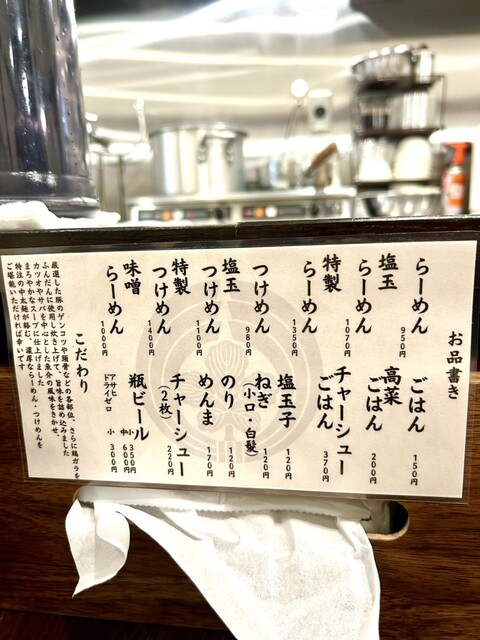 お品書き
らーめん 950円
塩玉らーめん 1070円
特製らーめん 1350円
つけめん 980円
塩玉つけめん 1100円
特製つけめん 1400円
味噌らーめん 1000円
ごはん 150円
高菜ごはん 200円
チャーシューごはん 370円
塩玉子 120円
ねぎ(小口・白髪) 120円
のり 120円
めんま 170円
チャーシュー(2枚) 220円
瓶ビール 小 350円 中 600円
アサヒドライゼロ 小 300円
こだわり
厳選した豚のゲンコツや頭骨などの各部位、さらに鶏ガラを
ふんだんに使用し炊き上げて、旨味を詰め込みました
カツオやサバを中心とした魚介の風味をきかせ、
まろやかなスープに仕上げました
特注の中太麺が絡む、濃厚ならーめん・つけめんを
ご堪能いただければ幸いです